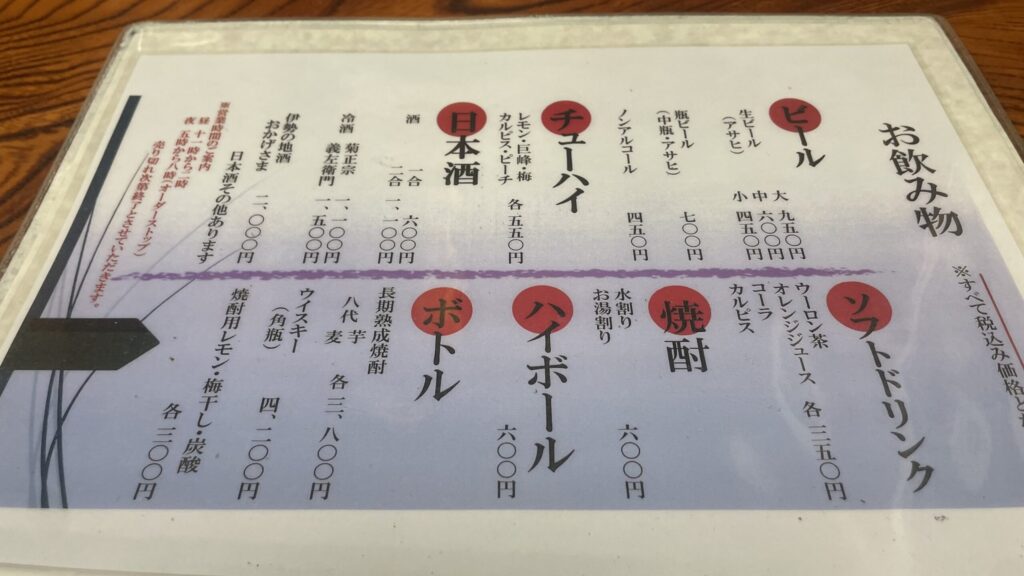 お飲み物
※すべて税込み価格とな
ビール
生ビール
(アサヒ)
大 九五〇円
中 六〇〇円
小 四五〇円
瓶ビール
(中瓶・アサヒ) 七〇〇円
ノンアルコール 四五〇円
チューハイ
レモン・巨峰・梅
カルピス・ピーチ 各 五五〇円
日本酒
酒 一合 六〇〇円
二合 一、一〇〇円
冷酒 菊正宗 一、一〇〇円
義左衛門 一、五〇〇円
伊勢の地酒
おかげさま 二、〇〇〇円
日本酒その他あります
※営業時間のご案内
昼 十一時から二時
夜 五時から八時(オーダーストップ)
売り切れ次第終了とさせていただきます。
ソフトドリンク
ウーロン茶
オレンジジュース 各 三五〇円
コーラ
カルピス
焼酎
水割り
お湯割り 六〇〇円
ハイボール 六〇〇円
ボトル
長期熟成焼酎
八代 芋
麦 各 三、八〇〇円
ウイスキー
(角瓶) 四、二〇〇円
焼酎用レモン・梅干し・炭酸
各 三〇〇円